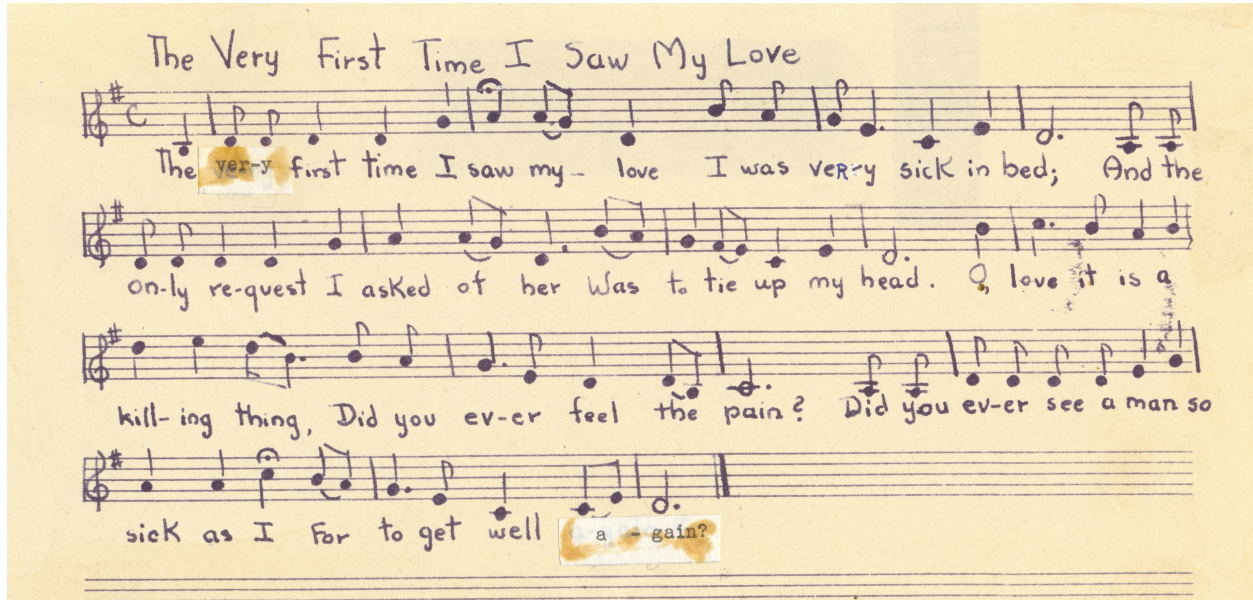 The Very First Time I Saw My Love
The ver-y first time I saw my- love I was veRry sick in bed; And the
on-ly re-quest I asked of her Was to tie up my head. O, love it is a
kill-ing thing, Did you ev-er feel the pain? Did you ev-er see a man so
sick as I For to get well a - gain?